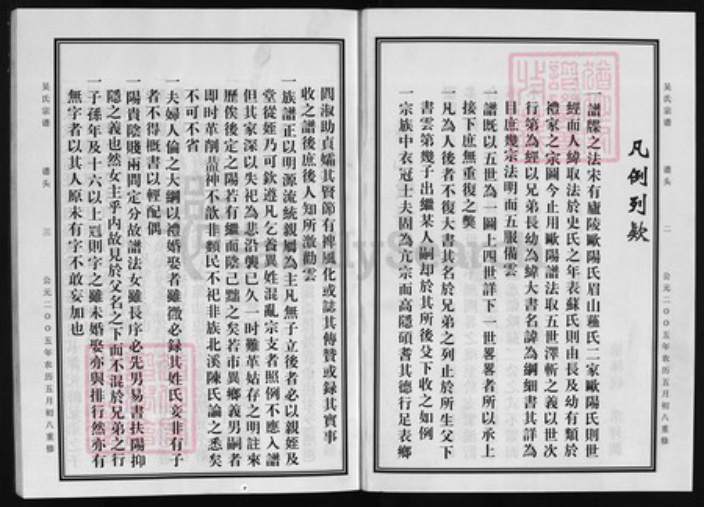 吴氏宗谱
谱头
二
公元二00五年农历五月初八重修
凡例列欵
一譜牒之法宋有廬陵歐陽氏眉山蘓氏二家歐陽氏則世
經而人緯取法於史氏之年表蘇氏則由長及幼有類於
禮家之宗圖今止用歐陽譜法取五世澤斬之義以世次
行第為經以兄弟長幼為緯大書名諱為綱細書其詳為
目庶幾宗法明而五服備雲
一譜既以五世為一圖上四世詳下一世畧畧者所以承上
接下庶無重復之獘
一凡為人後者不復大書其名於兄弟之列止於所生父下
書雲第幾子出繼某人嗣却於其所後父下收之如例
一宗族中衣冠士夫固為亢宗而高隱碩耆其德行足表鄉
閭淑助貞孀其賢節有裨風化或誌其傳贊或録其實事
收之譜後庶後人知所激勸雲
一族譜正以明源流統親屬為主凡無子立後者必以親姪及
堂從姪乃可欽遵凡乞養異姓混亂宗支者照例不應入譜
但其家深以失祀為悲沿襲已久一時難革姑存之明註來
歷俟後定之陽若有繼而陰已黜之矣若市異鄉義男嗣者
即时革削葢神不歆非類民不祀非族北溪陳氏論之悉矣
不可不省
一夫婦人倫之大綱以禮婚娶者雖微必録其姓氏妾非有子
者不得概書以輕配偶
一陽貴陰賤兩間定分故譜法女雖長序必先男易書扶陽抑
隱之義也然女主乎内故見於父名之下而不混於兄弟之行
一子孫年及十六以上冠則字之雖未婚娶亦與排行然亦有
無字者以其人原未有字不敢妄加也
吴氏宗谱
谱头
三
公元二00五年农历五月初八重修